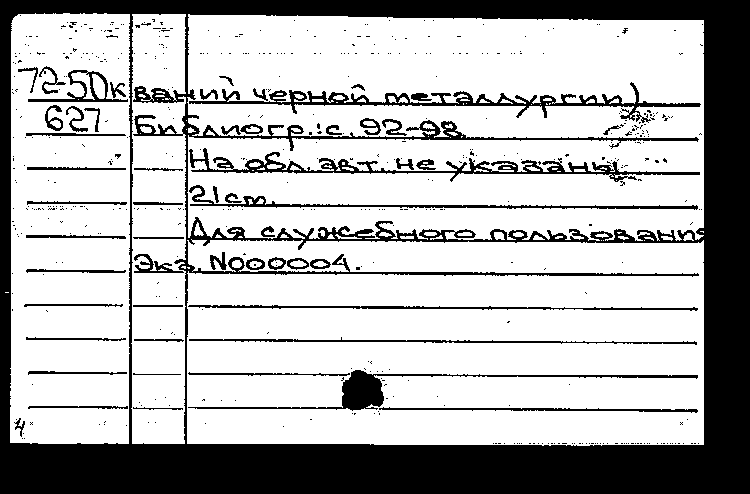 72-50к ваний черной металлургии).
627 Библиогр.: с. 92-98
На обл. авт. не указаны
21 cm.
Для служебного пользования
Экз. N000004.
4